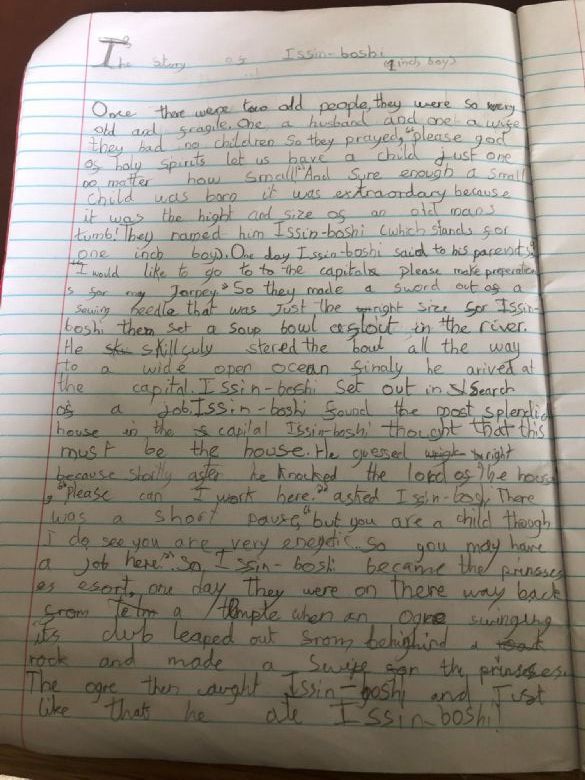 The story of Issin-boshi
(1 inch boy)
Once there were two old people, they were so very
old and fragile. One a husband and one a wife
they had no children so they prayed, "please god
of holy spirits let us have a child just one
no matter how small" And sure enough a small
child was born it was extraordary because
it was the hight and size of an old mans
tumb! They named him Issin-boshi (which stands for
one inch boy). One day Issin-boshi said to his parents,
"I would like to go to to the capitals please make preperation
s for my Jorney" So they made a sword out of a
sewing needle that was just the right size for Issin-
boshi them set a soup bowl aflout in the river.
He skillculy stered the bowl all the way
to a wide open ocean finaly he arived at
the capital. Issin-boshi set out in search
of a job. Issin-boshi found the most splendid
house in the capital Issin-boshi thought that this
must be the house. He guessed right
because shortly after he knocked the lord of the house
, "Please can I work here." asked Issin-bosy. There
was a short pause, "but you are a child though
I do see you are very enegetic. So you may have
a job here." So Issin-boshi became the prinsses
es esort, one day they were on there way back
from a temple when an ogre swinging
its club leaped out from behighind a
rock and made a swipe for the prinsses.
The ogre then caught Issin-boshi and Just
like that he ate Issin-boshi!